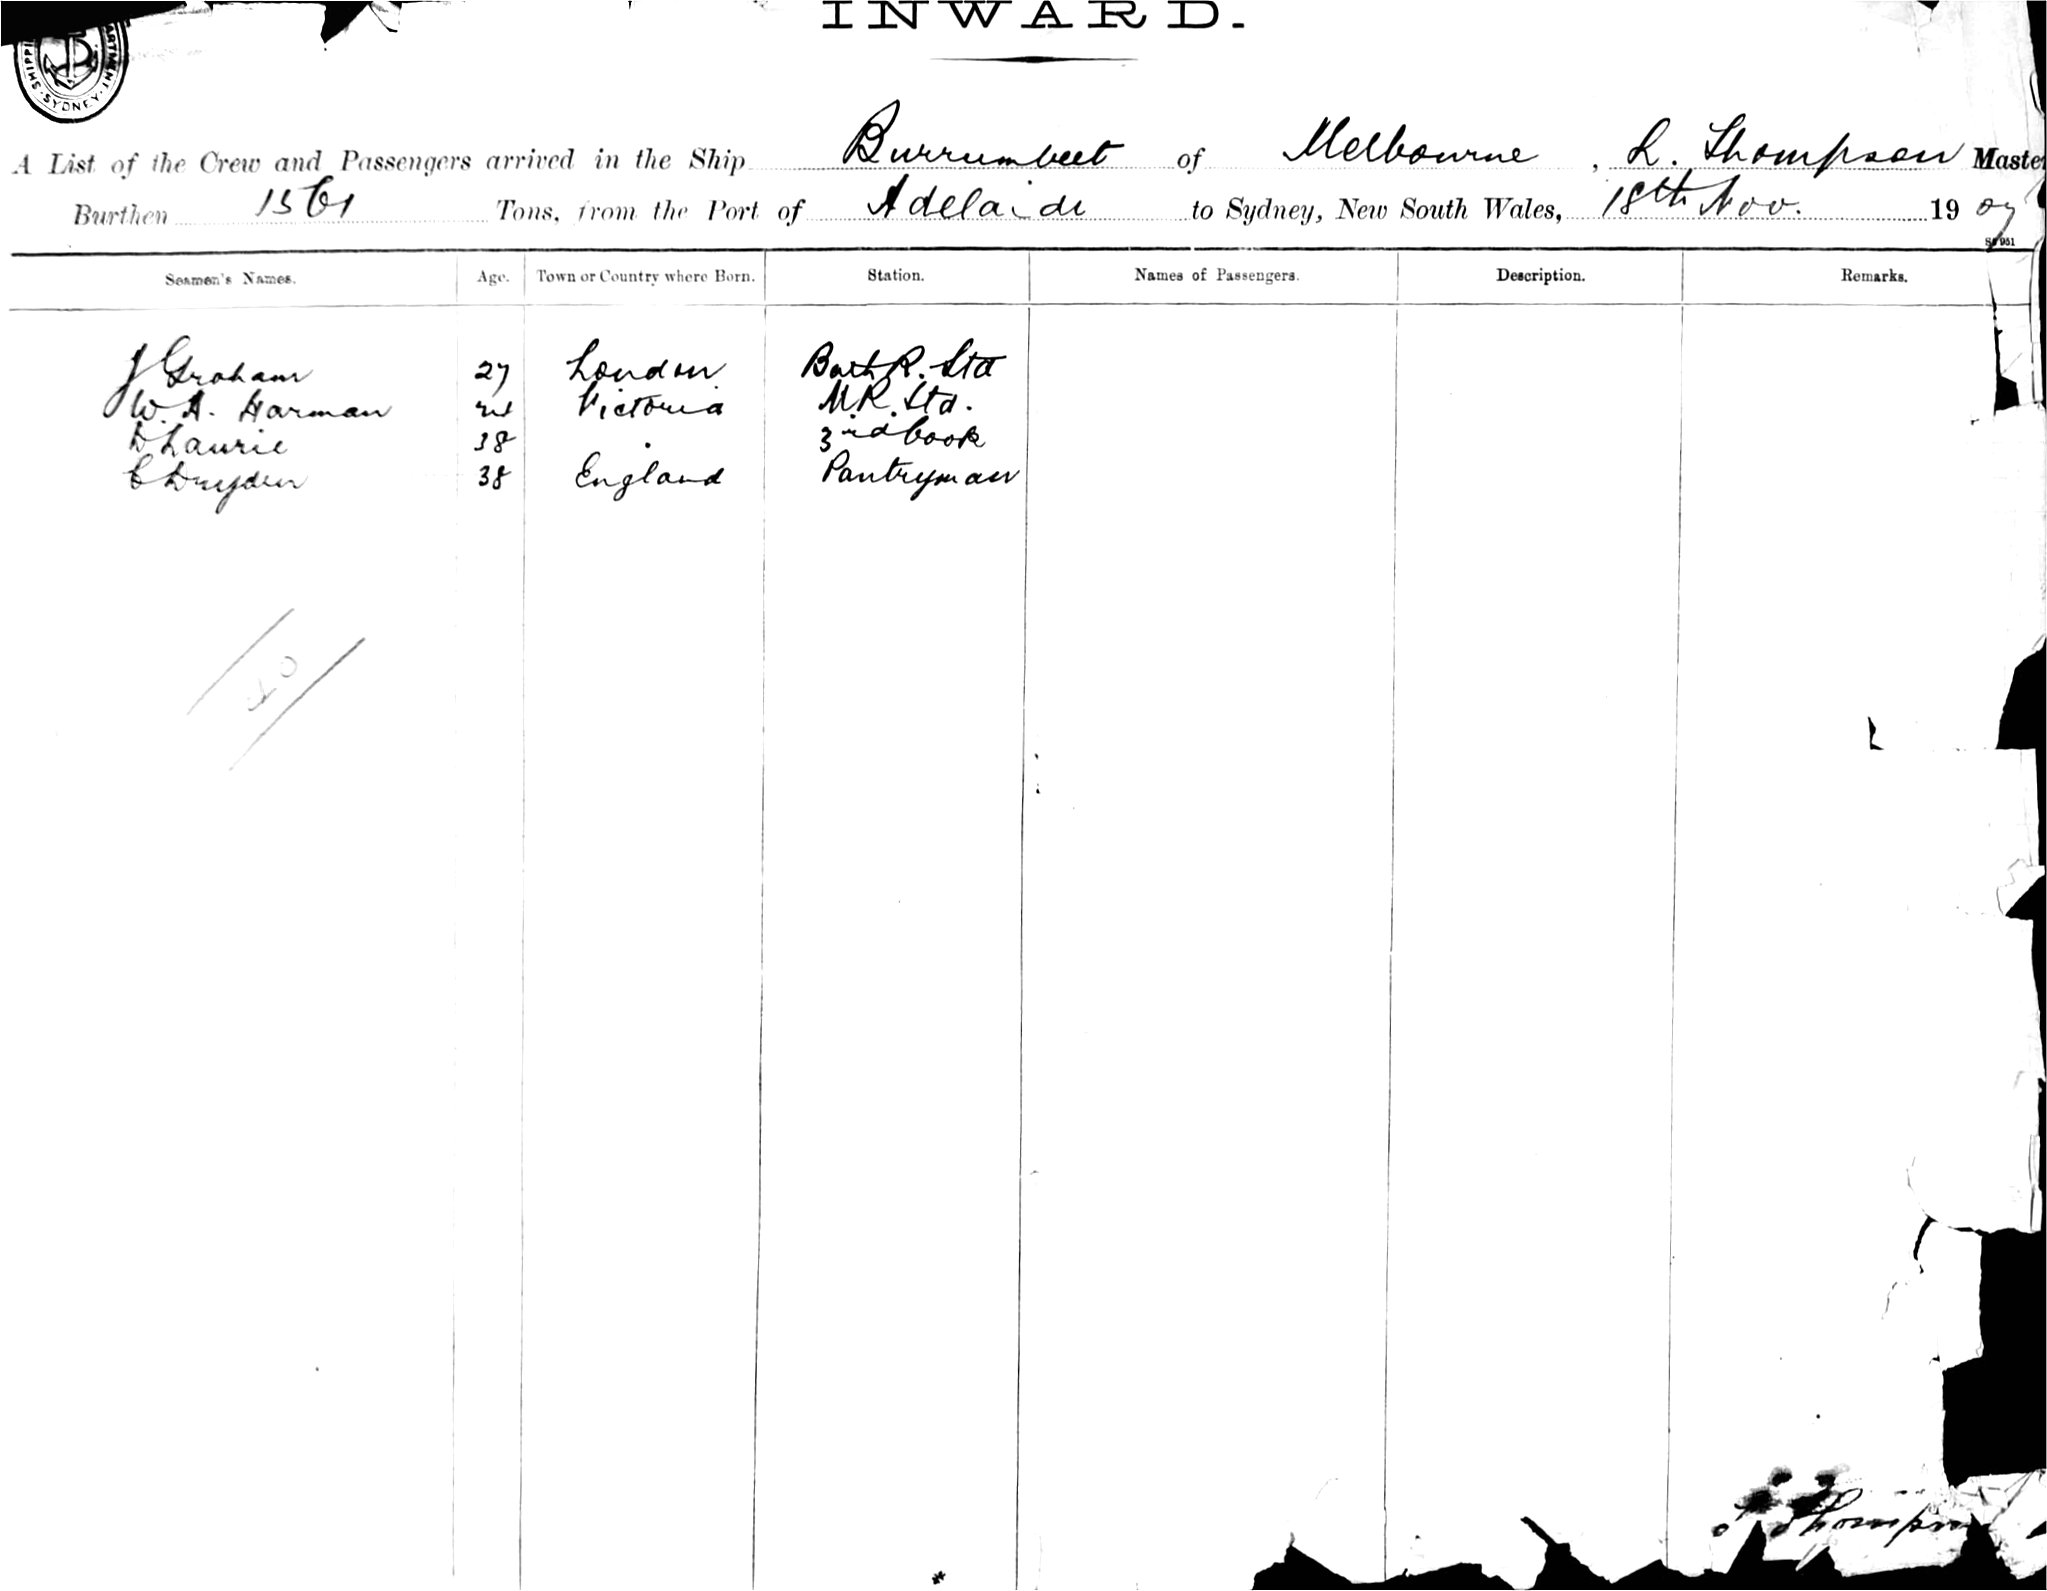 INWARD.
SYDNEY
A List of the Crew and Passengers arrived in the Ship Burrumbeet of Melbourne, L. Thompson Master
Burthen 1561 Tons, from the Port of Adelaide to Sydney, New South Wales, 18th Nov. 1907
Seamen's Names. Age. Town or Country where Born. Station. Names of Passengers. Description. Remarks.
J Graham 27 London Bath R. Std
W. A. Harman Victoria M.R. Std.
D Laurie 38 3rd Cook
C Dryden 38 England Pantryman
Thompson